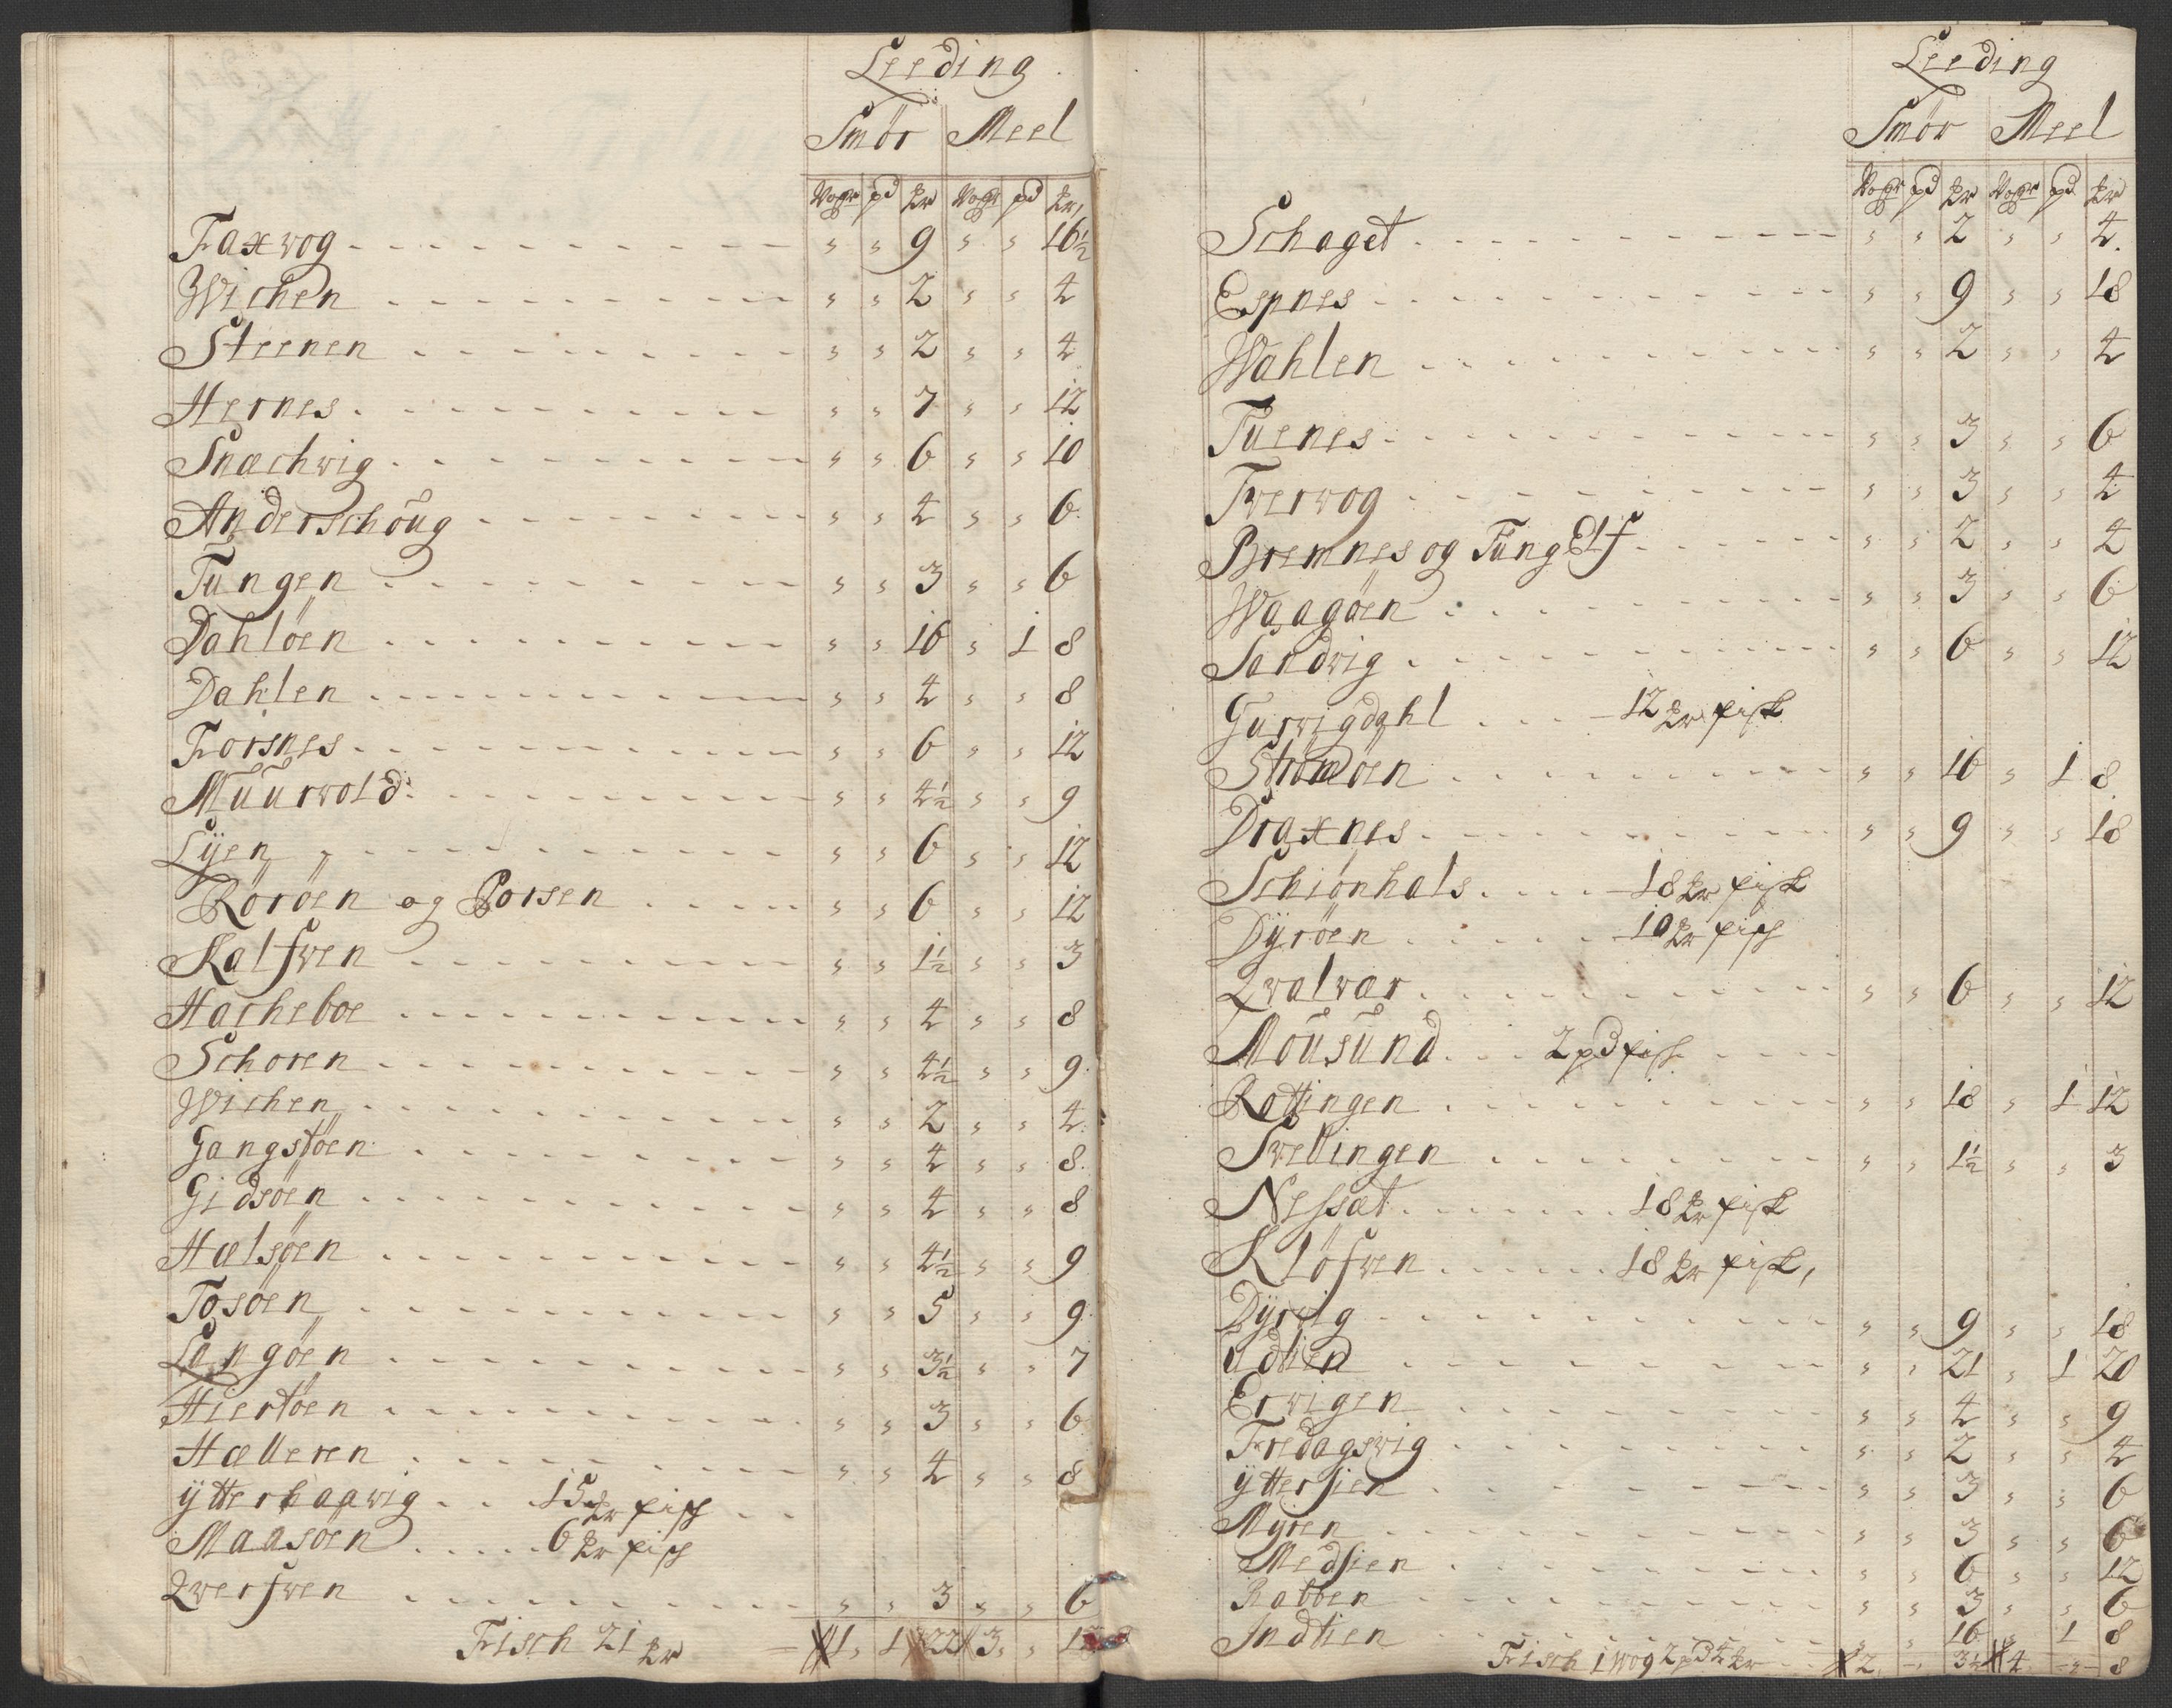 Leeding
Smör Meel
Voger pd Lr Voger pd Lr
Faxvog - - - „ „ 9 „ „ 16½
Wichen - - - „ „ 2 „ „ 4
Steenen - - - „ „ 2 „ „ 4
Hernes - - - „ „ 7 „ „ 12
Snæchvig - - - „ „ 6 „ „ 10
Anderschoug - - - „ „ 4 „ „ 6
Tungen - - - „ „ 3 „ „ 6
Dahlöen - - - „ „ 16 „ 1 8
Dahlen - - - „ „ 4 „ „ 8
Forsnes - - - „ „ 6 „ „ 12
Muurvold - - - „ „ 4½ „ „ 9
Lÿen - - - „ „ 6 „ „ 12
Röröen og Porsen - - - „ „ 6 „ „ 12
Kalfven - - - „ „ 1½ „ „ 3
Hacheboe - - - „ „ 4 „ „ 8
Schoren - - - „ „ 4½ „ „ 9
Wichen - - - „ „ 2 „ „ 4
Gangstöen - - - „ „ 4 „ „ 8
Gidsöen - - - „ „ 4 „ „ 8
Hælsöen - - - „ „ 4½ „ „ 9
Tosöen - - - „ „ 5 „ „ 9
Langöen - - - „ „ 3½ „ „ 7
Hiertöen - - - „ „ 3 „ „ 6
Hælleren - - - „ „ 4 „ „ 8
ytterhaavig - - 15 Lr fisch - -
Maasöen - - - 6 Lr fisch
Qverfven - - - „ „ 3 „ „ 6
Fisch 21 Lr - 1 „ 1 22 3 „ „
Leeding
Smör Meel
Voger pd Lr Voger pd Lr
Schaget - - - „ „ 2 „ „ 4
Espnes - - - „ „ 9 „ „ 18
Wahlen - - - „ „ 2 „ „ 4
Tuenes - - - „ „ 3 „ „ 6
Tvervog - - - „ „ 3 „ „ 4
Bremnes og Tung Elf - - - „ „ 2 „ „ 4
Waagöen - - - „ „ 3 „ „ 6
Sandvig - - - „ „ 6 „ „ 12
Gurvigdahl - - - 12 Lr fisk
Strömöen - - - „ „ 16 „ 1 8
Draxnes - - - „ „ 9 „ „ 18
Schiönhals - - - 18 Lr fisk
Dÿröen - - - 10 Lr fisch
Qvalvær - - - „ „ 6 „ „ 12
Mousund - - - 2 pd fisch - - -
Rottingen - - - „ „ 18 „ 1 12
Svellingen - - - „ „ 1½ „ „ 3
Nessæt - - - 18 Lr fisk
Klöfven - - - 18 Lr fisk,
Dÿrvig - - - „ „ 9 „ „ 18
Udtien - - - „ „ 21 „ 1 20
Ervigen - - - „ „ 4 „ „ 9
Fredagsvig - - - „ „ 2 „ „ 4
ÿttersien - - - „ „ 3 „ „ 6
Myren - - - „ „ 3 „ „ 6
Medsien - - - „ „ 6 „ „ 12
Rabben - - - „ „ 3 „ „ 6
Indtien - - - „ „ 16 „ 1 8
Fisch 1 Wog 2 pd 4 Lr - - 2 - 3½ 4 - „ - 8